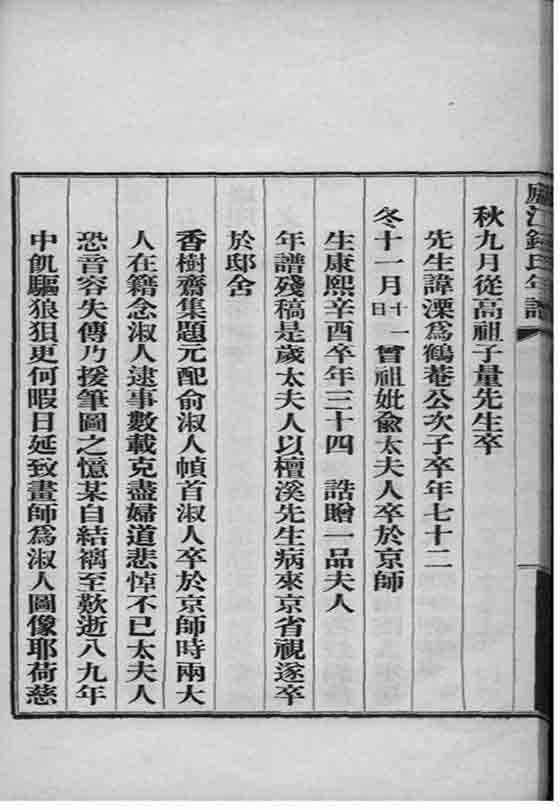 廬江錢氏年譜
秋九月從高祖子量先生卒
先生諱溧爲鶴菴公次子卒年七十二
冬十一月十一日曾祖妣兪太夫人卒於京師
生康熙辛酉卒年三十四 誥贈一品夫人
年譜殘稿是歲太夫人以檀溪先生病來京省視遂卒
於邸舍
香樹齋集題元配俞淑人幀首淑人卒於京師時兩大
人在籍念淑人逮事數載克盡婦道悲悼不已太夫人
恐音容失傳乃援筆圖之憶某自結褵至歎逝八九年
中飢驅狼狽更何暇日延致畫師爲淑人圖像耶荷慈